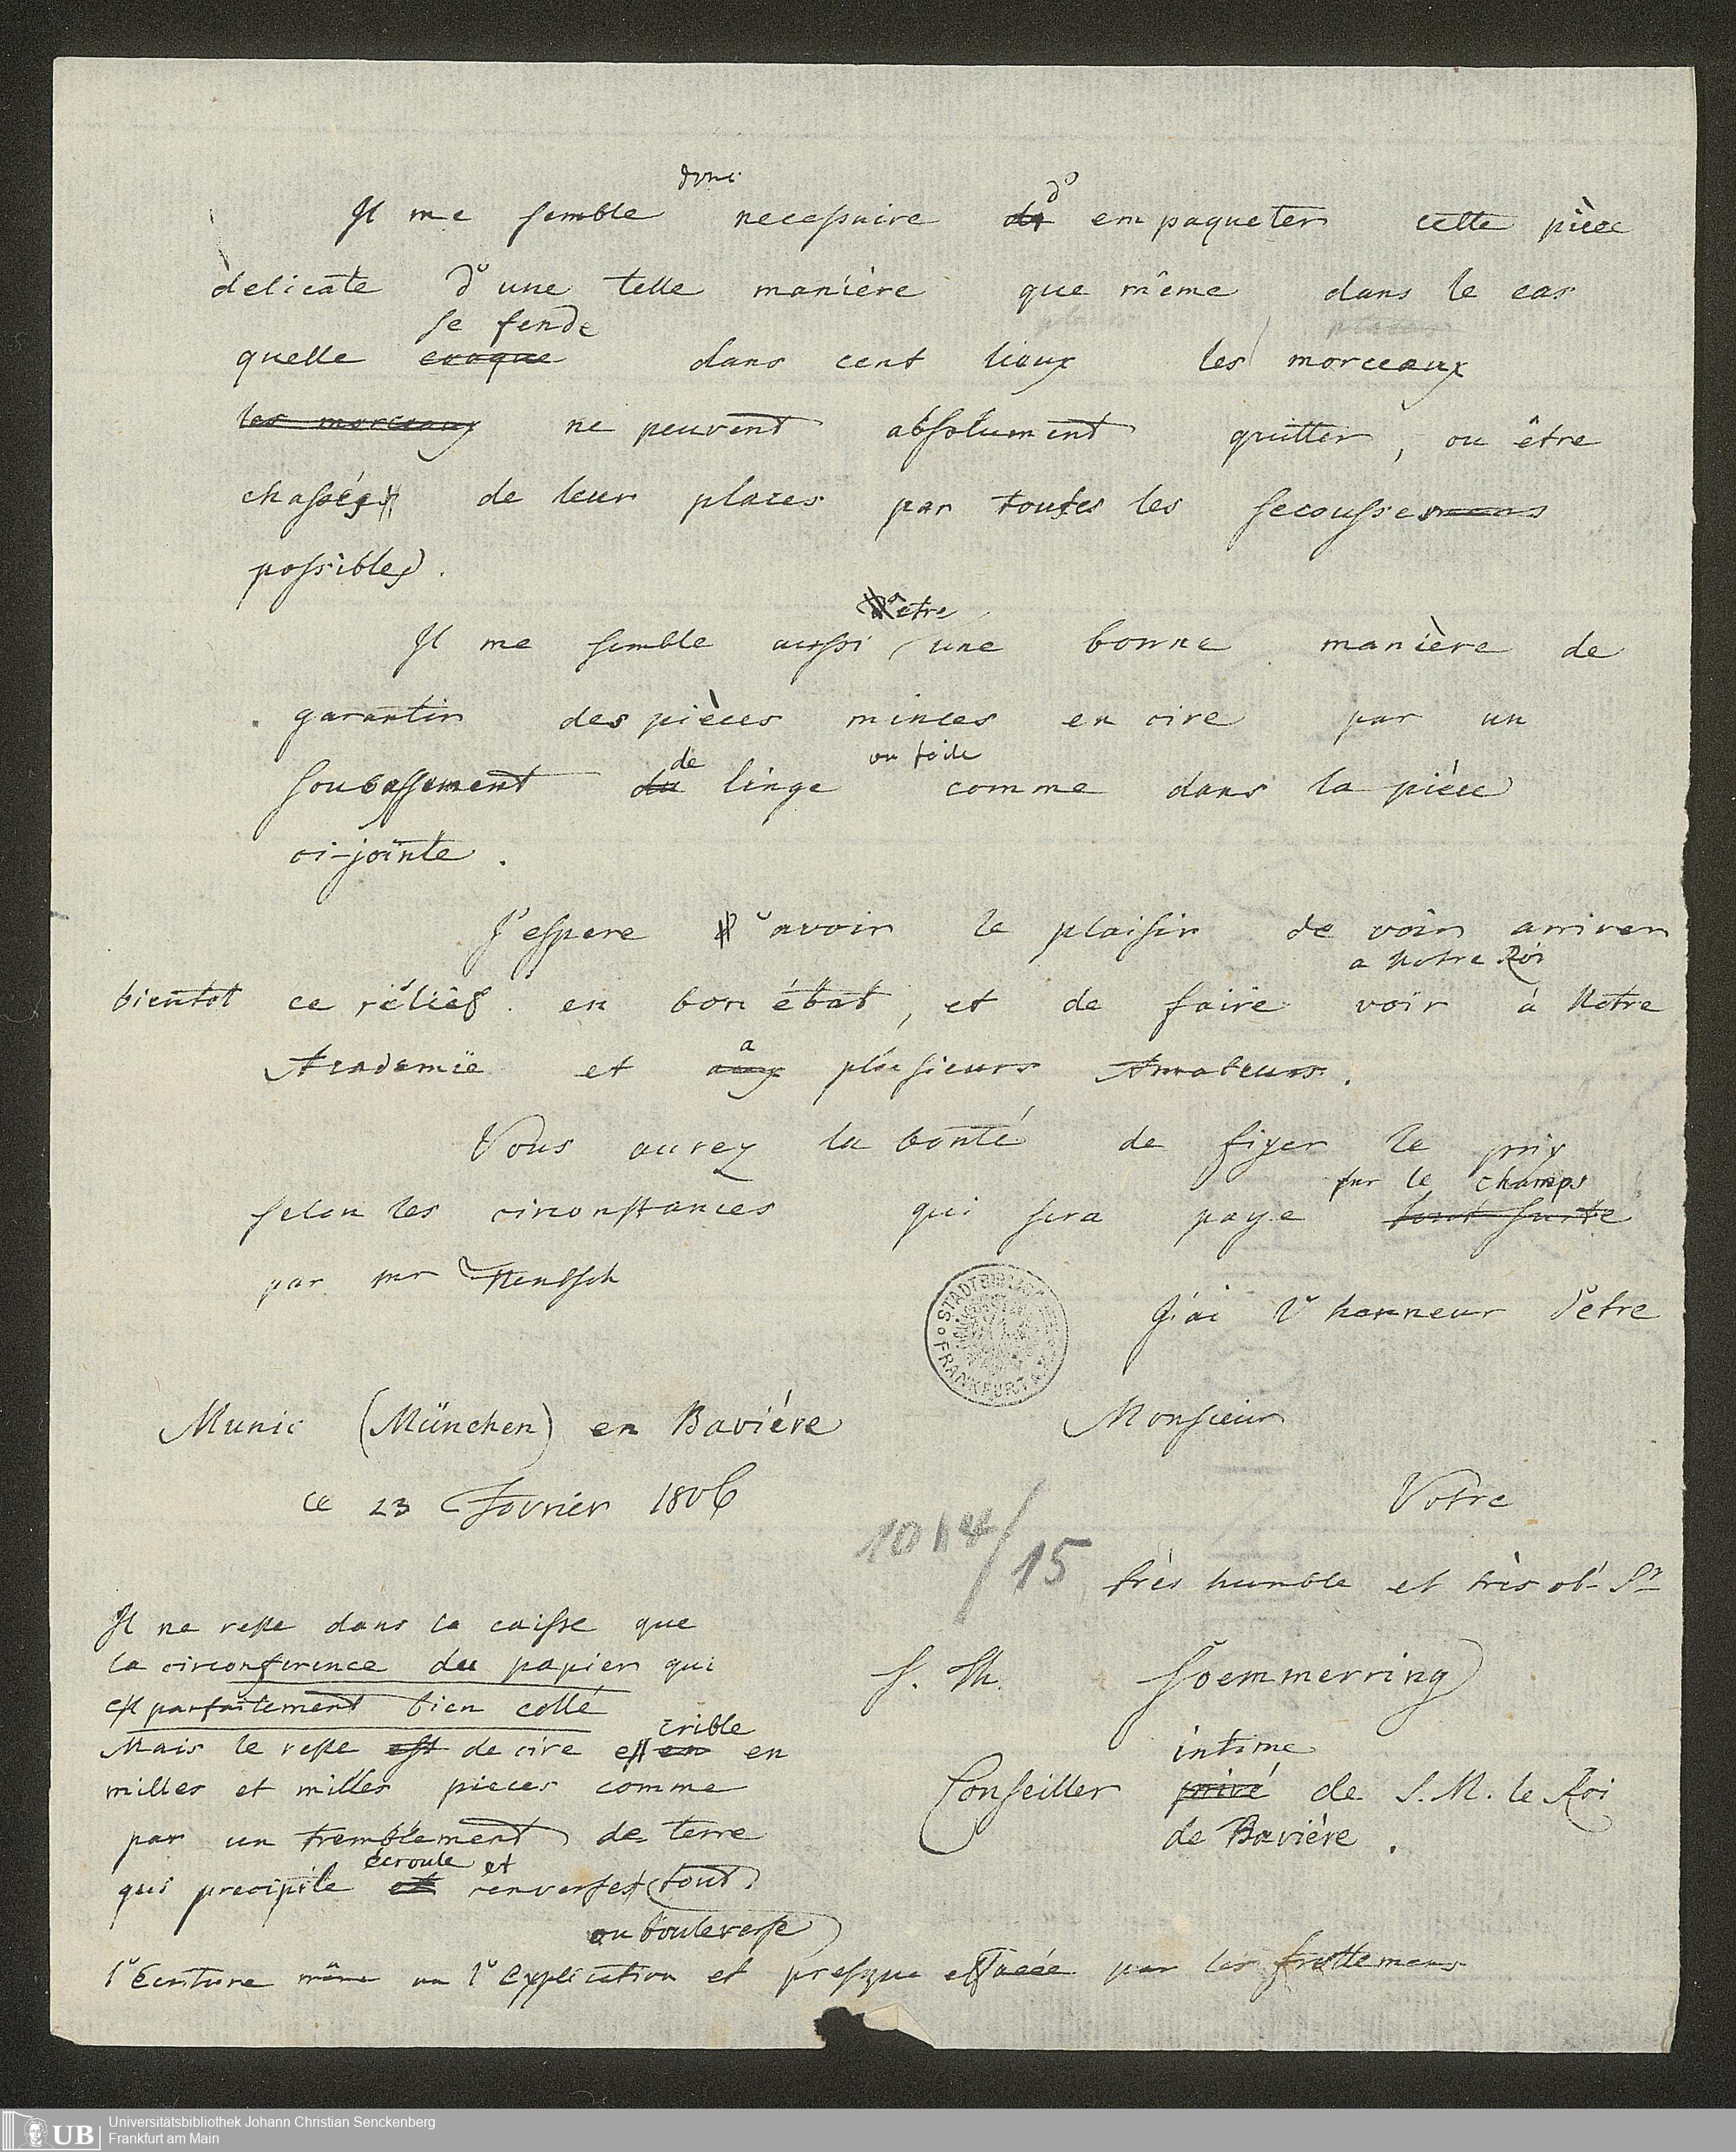 donc d'
Il me semble necessaire de empaqueter cette pièce
delicate d'une telle manière que même dans le cas
se fende
quelle craque dans cent lieux les morceaux
les morceaux ne peuvent absolument quitter, ou être
chassées de leur places par toutes les secoussemens
possibles.
être
Il me semble aussi une bonne manière de
garantir des pièces minces en cire par un
de ou toile
soubassement du linge comme dans la pièce
ci-jointe.
J'espere d'avoir le plaisir de voir arriver
a Notre Roi
bientot ce rélief en bon état, et de faire voir à Notre
a
Academie et aux plusieurs Amateurs.
Vous aurez la bonté de fixer le prix
sur le champs
selon les circonstances qui sera paye tout suite
par mr
J'ai l'honneur d'etre
Munic (München) en Baviére
Monsieur
ce 23 Fevrier 1806
Votre
1014/15
très humble et très ob. Sr
S. Th. Soemmerring
intime
Conseiller privé de S. M. le Roi
de Bavière.
Il ne reste dans la caisse que
la circonference du papier qui
est parfaitement bien collé
crible
Mais le reste est de cire est en en
milles et milles pieces comme
par un tremblement de terre
écroule et
qui precipite et renverse tout
ou bouleverse
l'Ecriture même ou l'explication et presque effacée par les frottemens
STADTBIBLIOTHEK FRANKFURT A. M.
UB Universitätsbibliothek Johann Christian Senckenberg
Frankfurt am Main